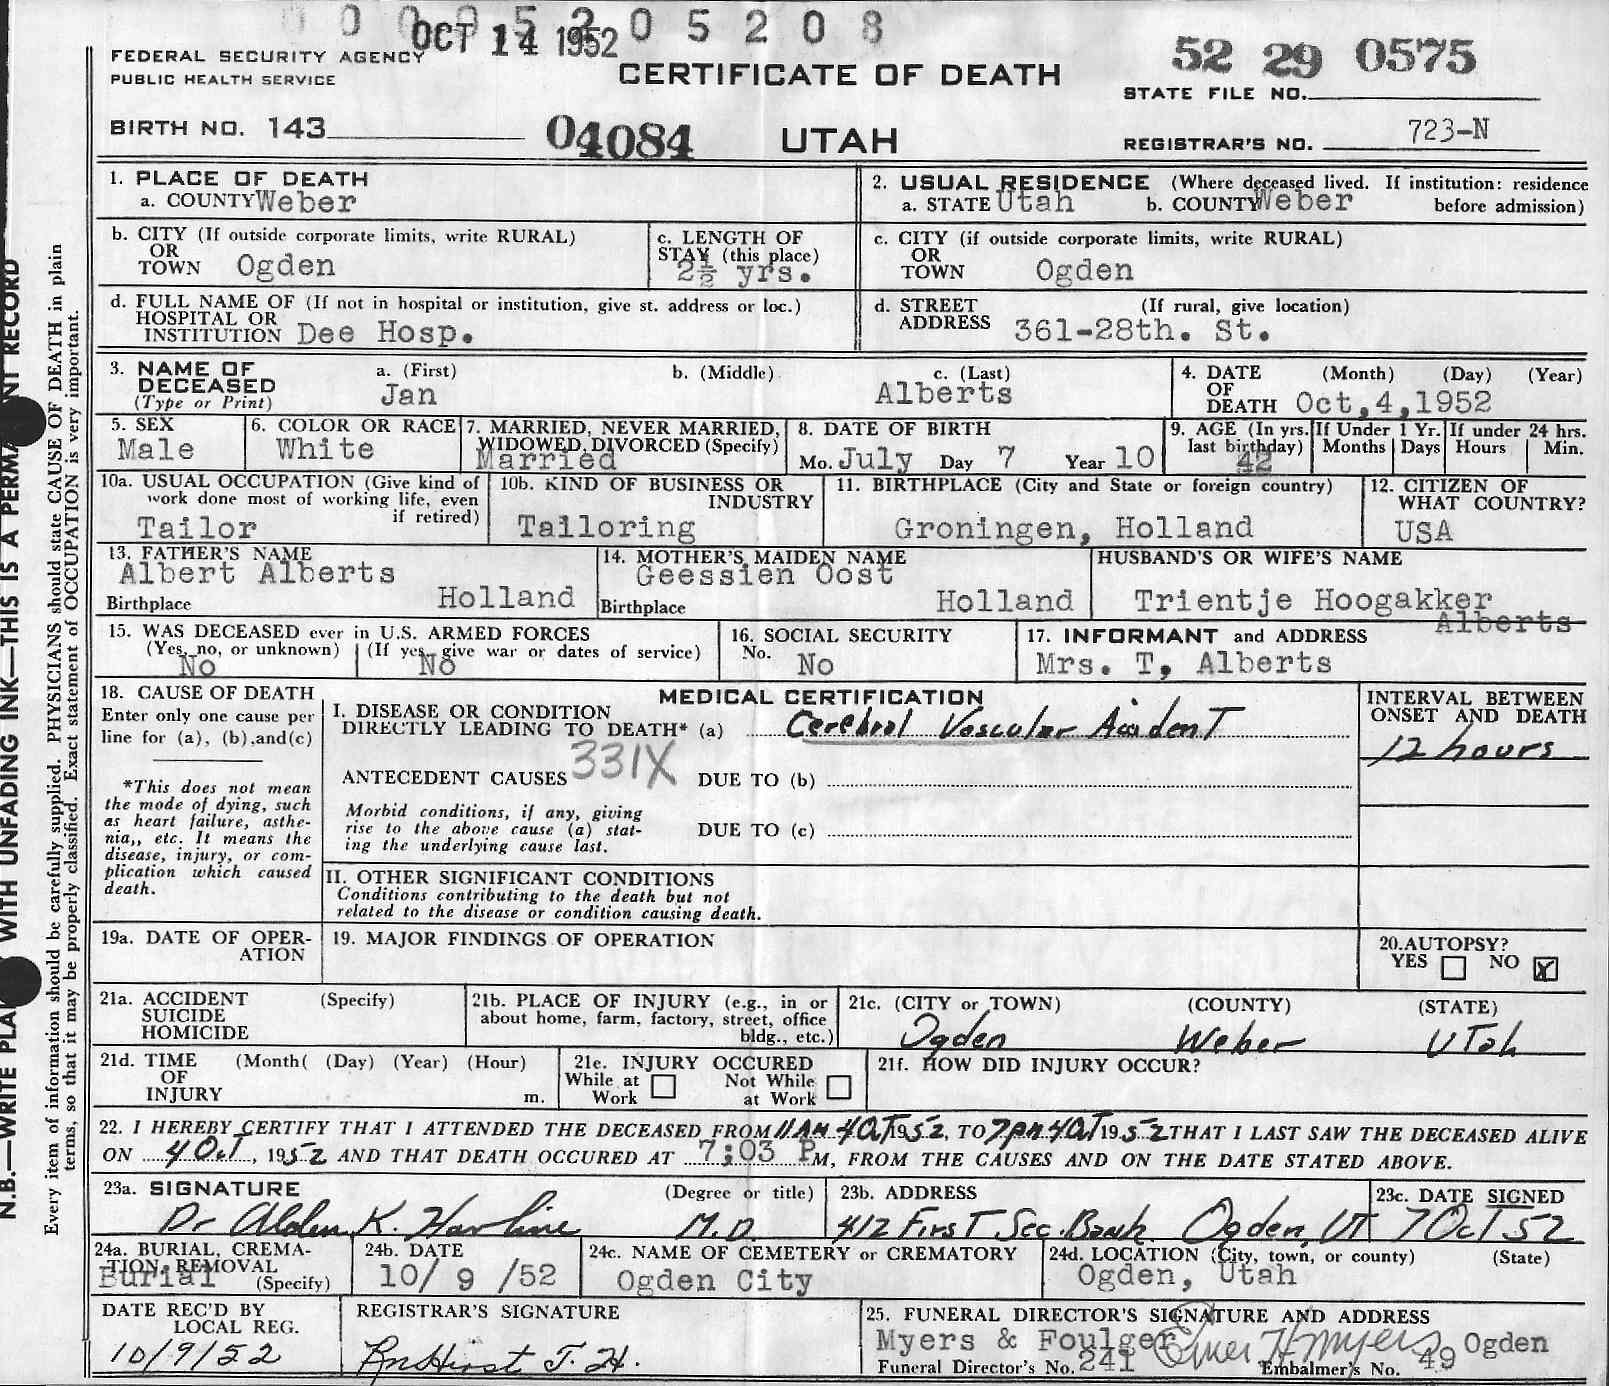 0 0 0 0 5 2 0 5 2 0 8
OCT 14 1952
FEDERAL SECURITY AGENCY
PUBLIC HEALTH SERVICE
CERTIFICATE OF DEATH
52 29 0575
STATE FILE NO.
BIRTH NO. 143
04084
UTAH
REGISTRAR'S NO. 723-N
1. PLACE OF DEATH
a. COUNTY Weber
2. USUAL RESIDENCE (Where deceased lived. If institution: residence
a. STATE Utah b. COUNTY Weber before admission)
b. CITY (If outside corporate limits, write RURAL)
OR
TOWN Ogden
c. LENGTH OF
STAY (this place)
2½ yrs.
c. CITY (if outside corporate limits, write RURAL)
OR
TOWN Ogden
d. FULL NAME OF (If not in hospital or institution, give st. address or loc.)
HOSPITAL OR
INSTITUTION Dee Hosp.
d. STREET (If rural, give location)
ADDRESS 361-28th. St.
3. NAME OF
DECEASED
(Type or Print)
a. (First)
Jan
b. (Middle)
c. (Last)
Alberts
4. DATE (Month) (Day) (Year)
OF
DEATH Oct,4,1952
5. SEX
Male
6. COLOR OR RACE
White
7. MARRIED, NEVER MARRIED,
WIDOWED, DIVORCED (Specify)
Married
8. DATE OF BIRTH
Mo. July Day 7 Year 10
9. AGE (In yrs.
last birthday)
42
If Under 1 Yr.
Months Days
If under 24 hrs.
Hours Min.
10a. USUAL OCCUPATION (Give kind of
work done most of working life, even
if retired)
Tailor
10b. KIND OF BUSINESS OR
INDUSTRY
Tailoring
11. BIRTHPLACE (City and State or foreign country)
Groningen, Holland
12. CITIZEN OF
WHAT COUNTRY?
USA
13. FATHER'S NAME
Albert Alberts
Birthplace Holland
14. MOTHER'S MAIDEN NAME
Geessien Oost
Birthplace Holland
HUSBAND'S OR WIFE'S NAME
Trientje Hoogakker
Alberts
15. WAS DECEASED ever in U.S. ARMED FORCES
(Yes, no, or unknown) (If yes, give war or dates of service)
No No
16. SOCIAL SECURITY
No. No
17. INFORMANT and ADDRESS
Mrs. T, Alberts
18. CAUSE OF DEATH
Enter only one cause per
line for (a), (b), and(c)
*This does not mean
the mode of dying, such
as heart failure, asthe-
nia,, etc. It means the
disease, injury, or com-
plication which caused
death.
MEDICAL CERTIFICATION
I. DISEASE OR CONDITION
DIRECTLY LEADING TO DEATH* (a) Cerebral Vascular Accident
ANTECEDENT CAUSES 331X DUE TO (b)
Morbid conditions, if any, giving
rise to the above cause (a) stat-
ing the underlying cause last.
DUE TO (c)
II. OTHER SIGNIFICANT CONDITIONS
Conditions contributing to the death but not
related to the disease or condition causing death.
INTERVAL BETWEEN
ONSET AND DEATH
12 hours
19a. DATE OF OPER-
ATION
19. MAJOR FINDINGS OF OPERATION
20. AUTOPSY?
YES NO X
21a. ACCIDENT (Specify)
SUICIDE
HOMICIDE
21b. PLACE OF INJURY (e.g., in or
about home, farm, factory, street, office
bldg., etc.)
21c. (CITY or TOWN) (COUNTY) (STATE)
Ogden Weber Utah
21d. TIME (Month( (Day) (Year) (Hour)
OF
INJURY m.
21e. INJURY OCCURED
While at Work Not While at Work
21f. HOW DID INJURY OCCUR?
22. I HEREBY CERTIFY THAT I ATTENDED THE DECEASED FROM 11 AM 4 Oct 1952, TO 7 PM 4 Oct 1952 THAT I LAST SAW THE DECEASED ALIVE
ON 4 Oct, 1952 AND THAT DEATH OCCURED AT 7:03 PM, FROM THE CAUSES AND ON THE DATE STATED ABOVE.
23a. SIGNATURE (Degree or title)
Dr Alden K. M.D.
23b. ADDRESS
412 First Sec. Bank Ogden, Ut
23c. DATE SIGNED
7 Oct 52
24a. BURIAL, CREMA-
TION, REMOVAL
(Specify)
Burial
24b. DATE
10/ 9 /52
24c. NAME OF CEMETERY or CREMATORY
Ogden City
24d. LOCATION (City, town, or county) (State)
Ogden, Utah
DATE REC'D BY
LOCAL REG.
10/9/52
REGISTRAR'S SIGNATURE
25. FUNERAL DIRECTOR'S SIGNATURE AND ADDRESS
Myers & Foulger Elmer H Myers Ogden
Funeral Director's No. 241 Embalmer's No. 49
Every item of information should be carefully supplied. PHYSICIANS should state CAUSE OF DEATH in plain
terms, so that it may be properly classified. Exact statement of OCCUPATION is very important.